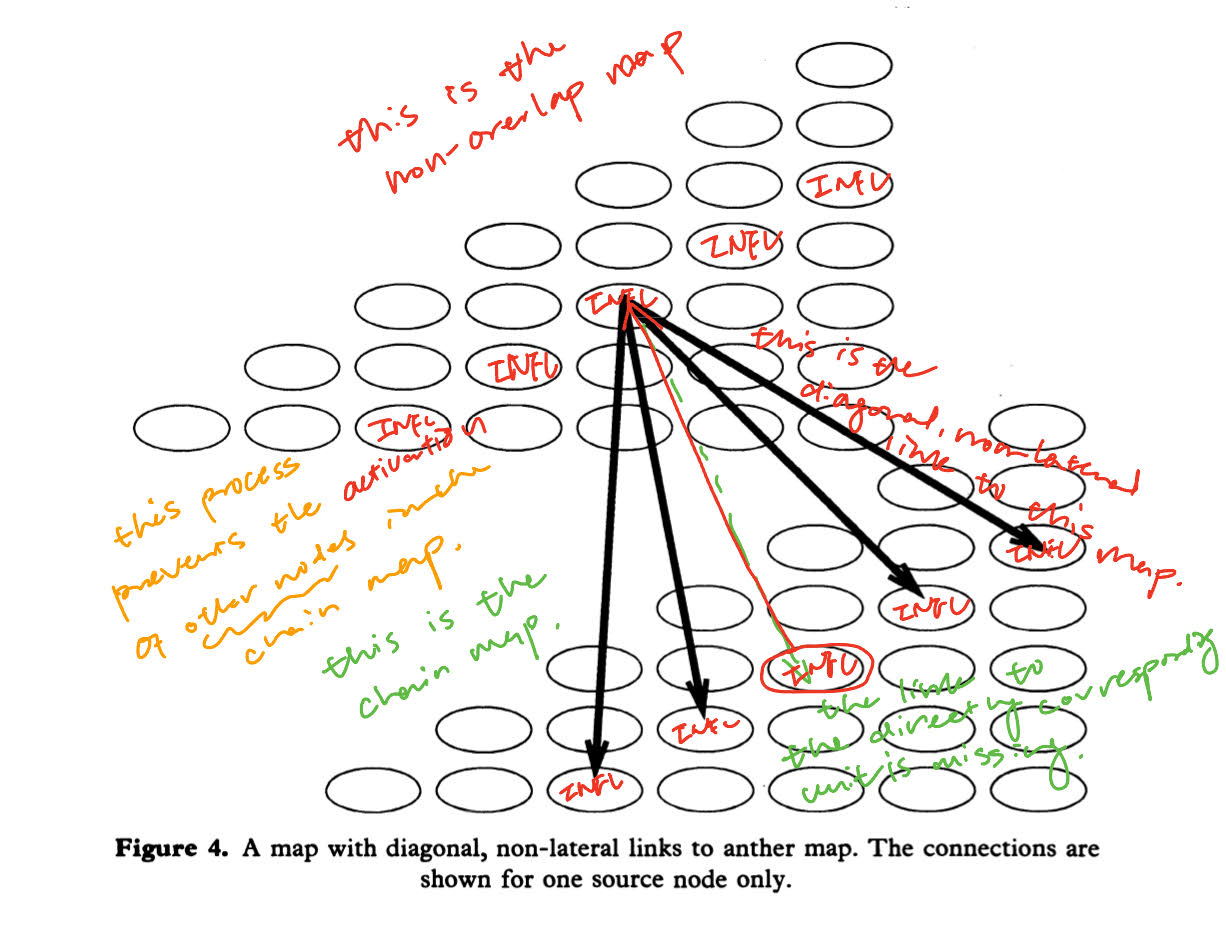 this is the
non-overlap map
INFL
INFL
INFL
INFL
INFL
this is the
diagonal, non-lateral
link to this map.
this process
prevents the activation
of other nodes in the
chain map.
this is the
chain map.
INFL
INFL
INFL
INFL
INFL
the link to
the directly corresponding
unit is missing.
Figure 4. A map with diagonal, non-lateral links to anther map. The connections are
shown for one source node only.